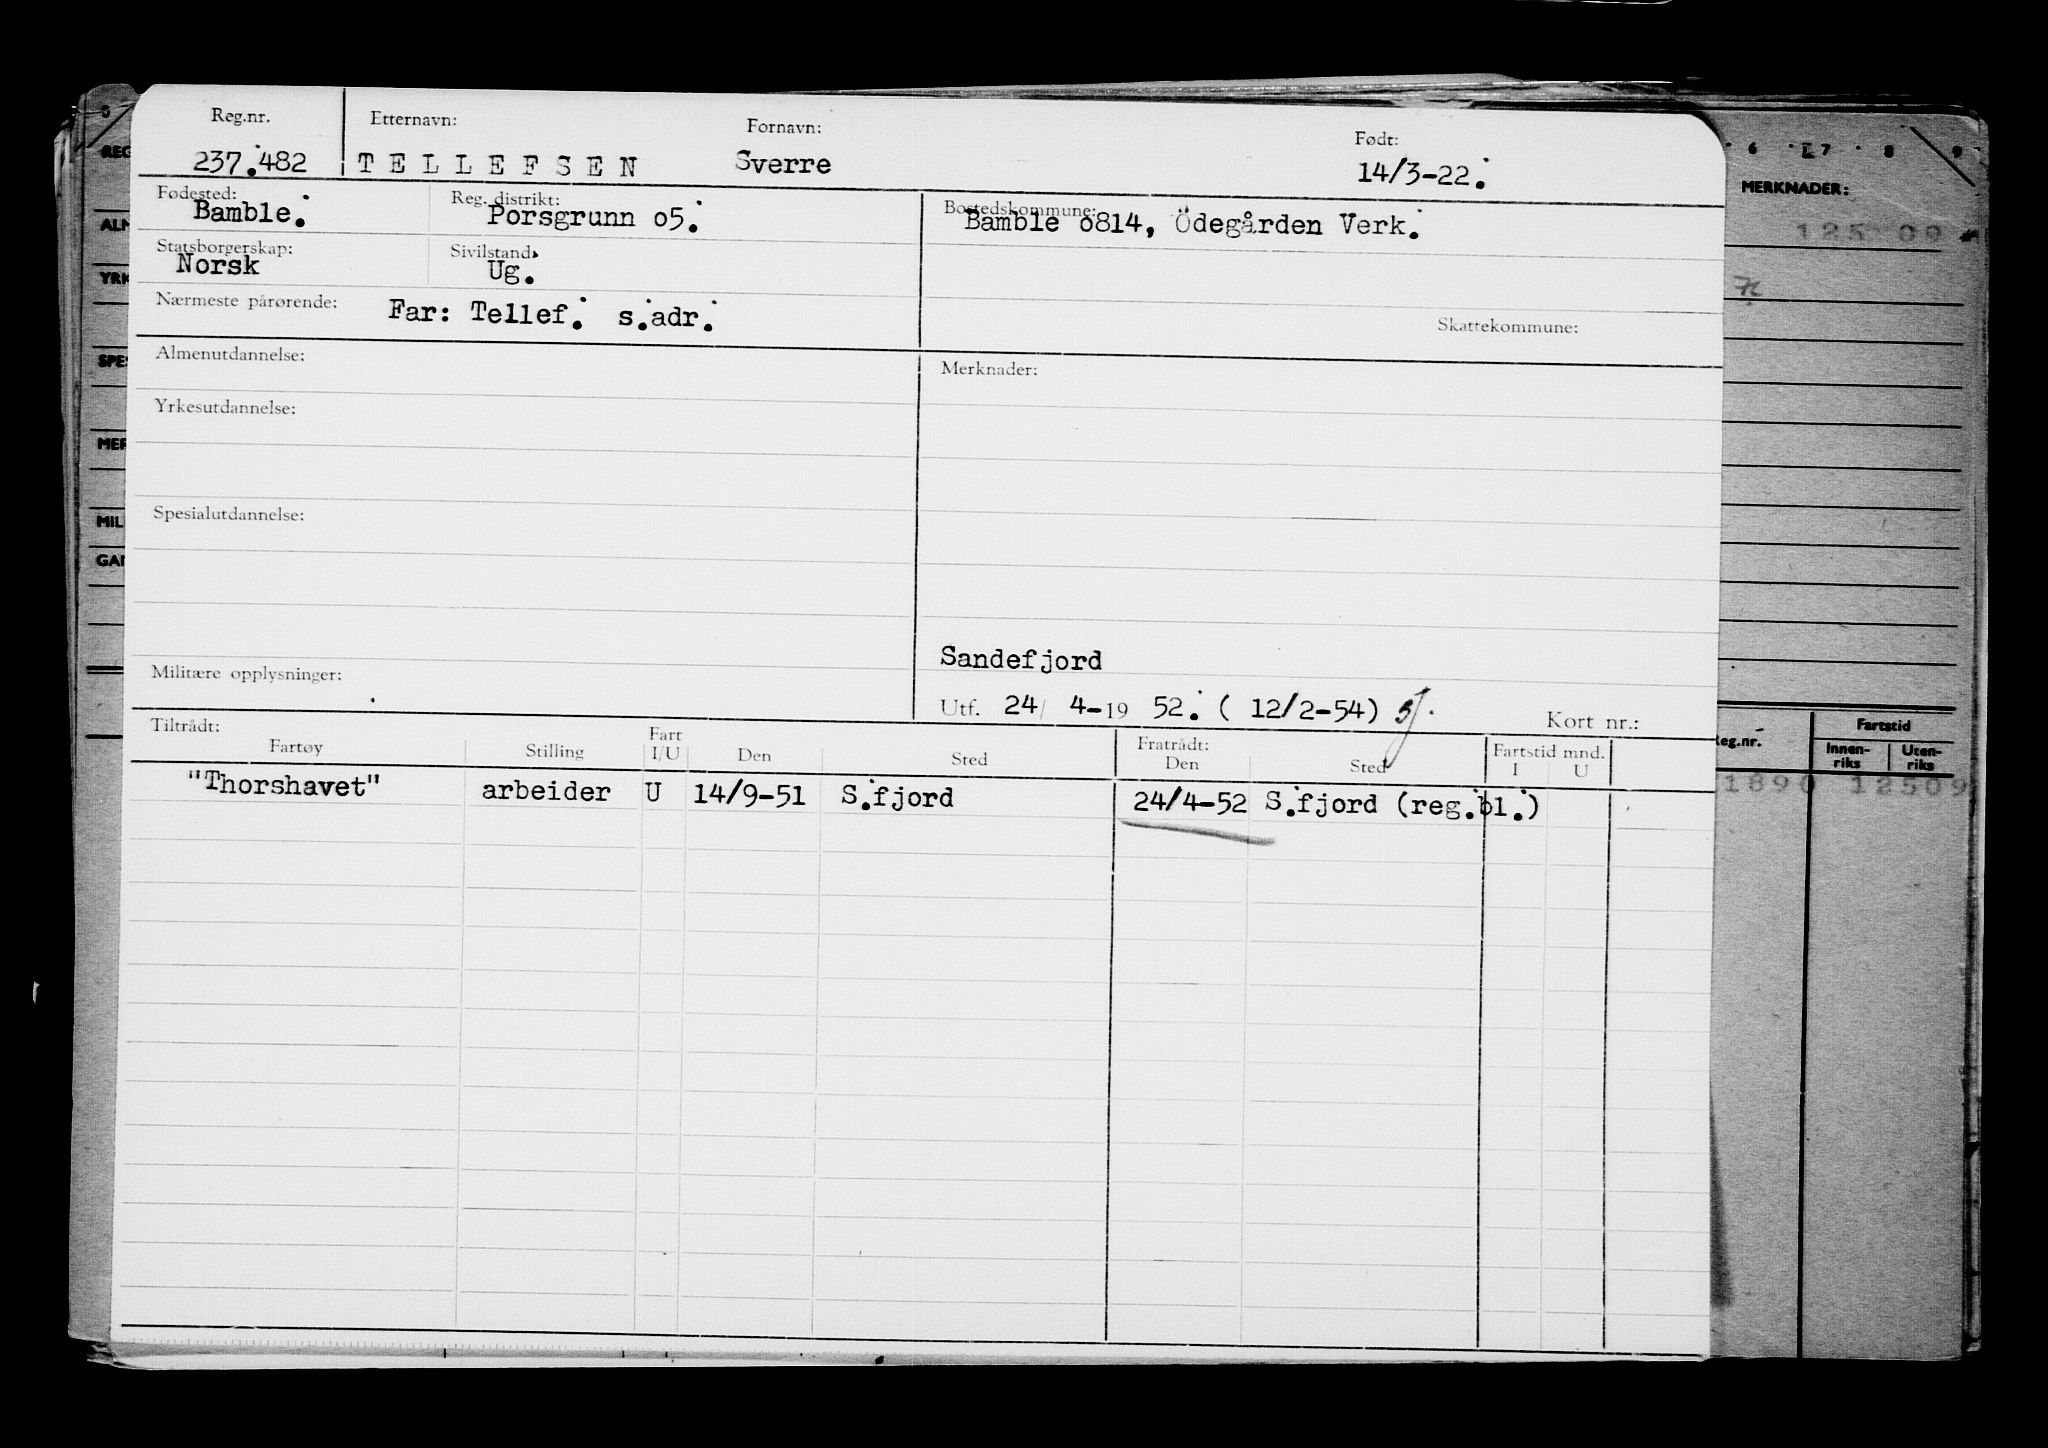 Reg.nr. Etternavn: Fornavn: Født:
237.482 TELLEFSEN Sverre 14/3-22.
Fødested: Reg. distrikt: Bostedskommune:
Bamble. Porsgrunn o5. Bamble o814, Ödegården Verk.
Statsborgerskap: Sivilstand:
Norsk Ug.
Nærmeste pårørende: Far: Tellef. s.adr.
Skattekommune:
Almenutdannelse: Merknader:
Yrkesutdannelse:
Spesialutdannelse:
Sandefjord
Militære opplysninger:
Utf. 24/ 4-19 52. ( 12/2-54) Kort nr.:
Tiltrådt: Fart Fratrådt: Fartstid mnd.
Fartøy Stilling I/U Den Sted Den Sted I U
"Thorshavet" arbeider U 14/9-51 S.fjord 24/4-52 S.fjord (reg.bl.)
6 7 8 9
MERKNADER:
125 09
Reg.nr. Fartstid
Innen-riks Uten-riks
1890 12509
REG
ALM
YRK
SPES
MER
MIL